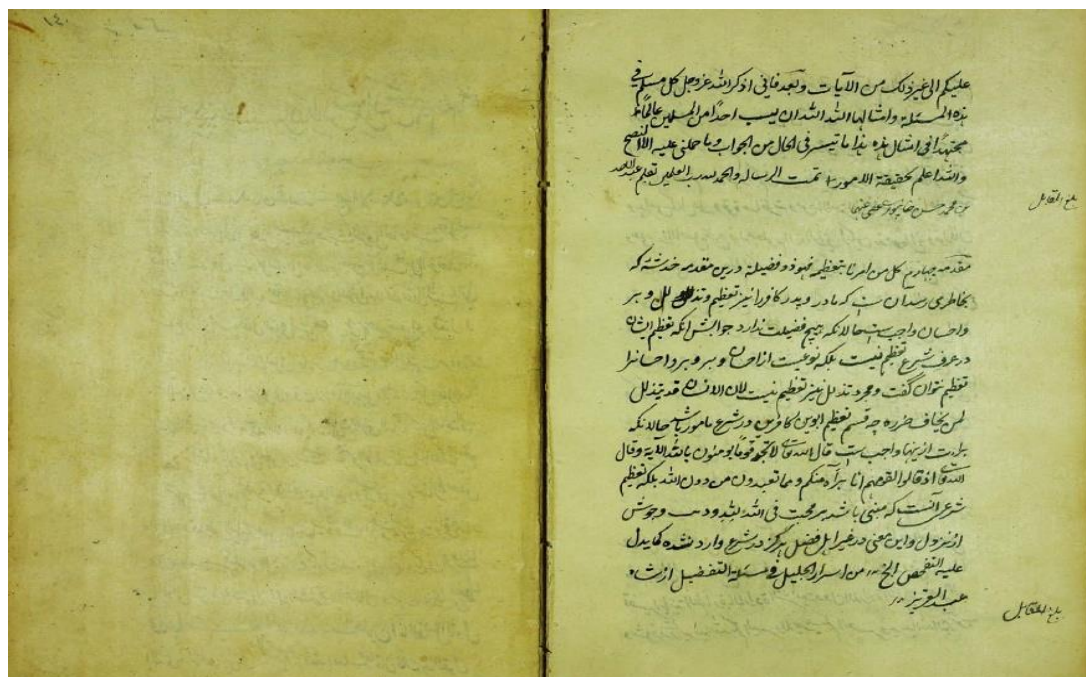 علیکم الی غیر ذلک من الآیات وبعد فانی اذکر الله عز وجل کل مسلم فی
هذه المسئلة وامثالها الله الله ان یسب احدًا من المسلمین عالمًا
مجتهدًا فی امثال هذه هذا ما تیسر فی الحال من الجواب وما حملنی علیه الا النصح
والله اعلم بحقیقة الامور تمت الرساله والحمد لله رب العلمین بقلم عبد الاحد
بن محمد حسن خانپوری عفی عنهما
بلغ التقابل
مقدمه چهارم کل من امرنا بتعظیمه فهو ذو فضیلة درین مقدمه خدشه که
بخاطر می رسد آن ست که مادر و پدر کافر را نیز تعظیم وتذلل و بر
واحسان واجب ست حالانکه هیچ فضیلت ندارد جوابش آنکه تعظیم ایشان
در عرف شرع تعظیم نیست بلکه نوعیست از احسان و بر و بر و احسان را
تعظیم نتوان گفت ومجرد تذلل نیز تعظیم نیست لان الانسان قد یتذلل
لمن یخاف ضرره چه قسم تعظیم ابوین کافرین در شرع مامور باشد حالانکه
براءت ازینها واجب ست قال الله تعالی لا تجد قوما یومنون بالله الآیه وقال
الله تعالی اذ قالوا لقومهم انا برآء منکم ومما تعبدون من دون الله بلکه تعظیم
شرعی آنست که مبنی باشد بر محبت فی الله ودر
از وی این معنی در غیر اهل فضل هرگز در شرع وارد نشده کما یدل
علیه التفحص الخ من اسرار الجلیل فی مسئلة التفضیل از شاه
عبد العزیز
بلغ المقابل